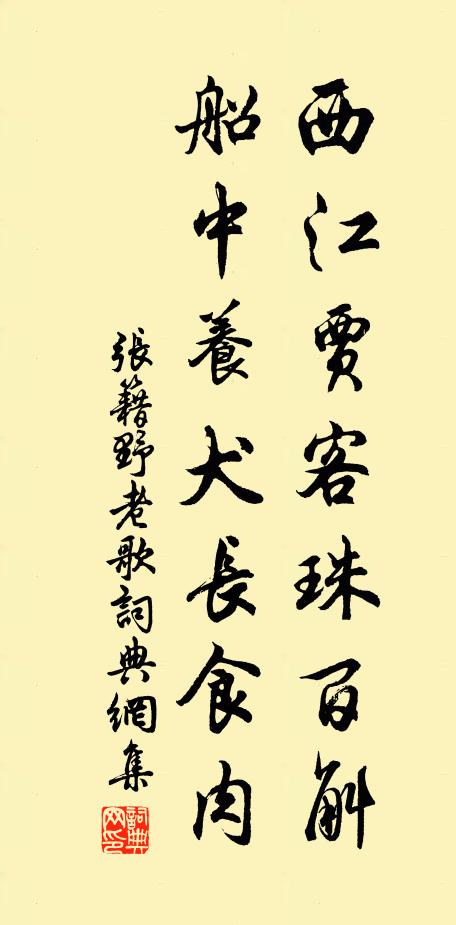 西江賈客珠百斛
船中養犬長食肉
張籍野老歌詞典網集
詞典網印